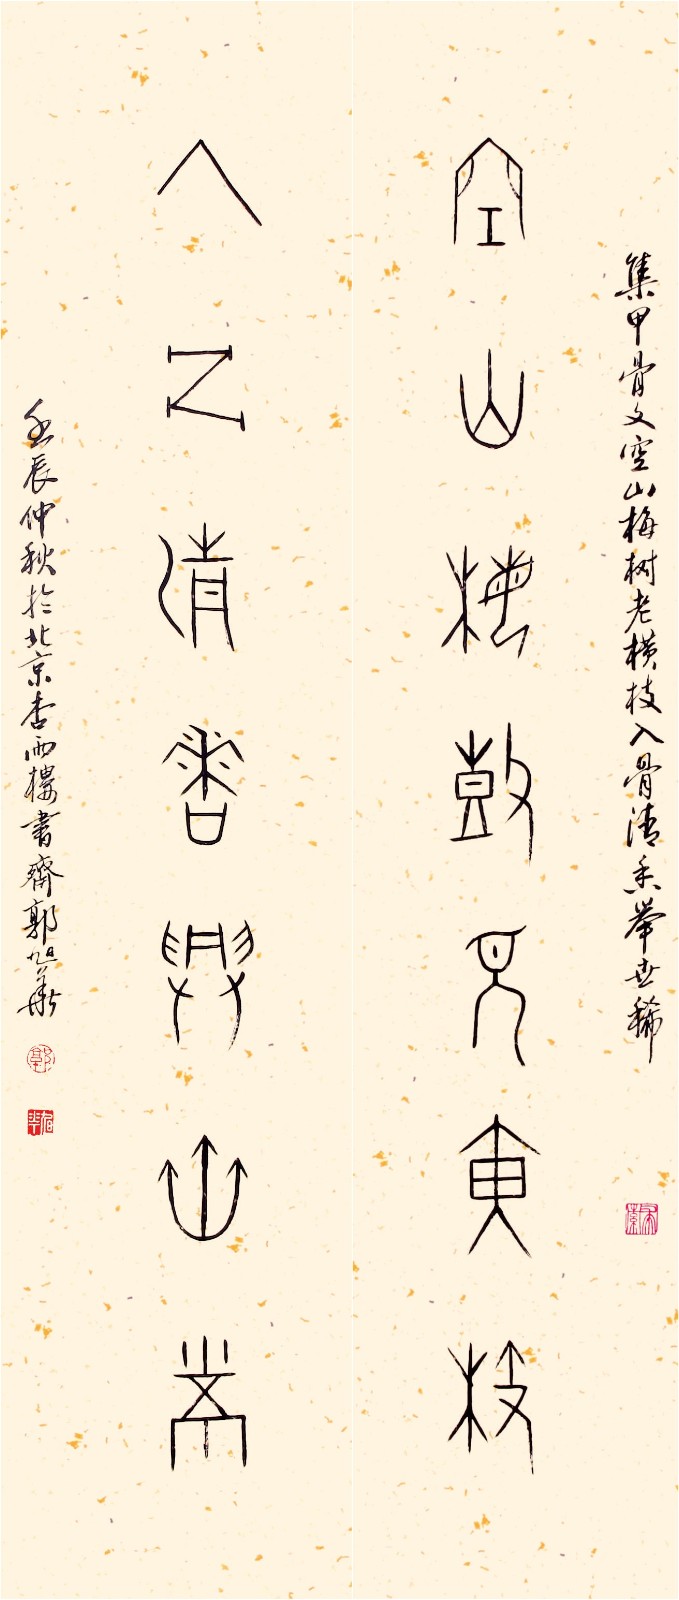 集甲骨文空山梅树老横枝入骨清香举世稀
空山梅树老横枝
入骨清香举世稀
壬辰仲秋於北京杏雨樓書齋郭旭華